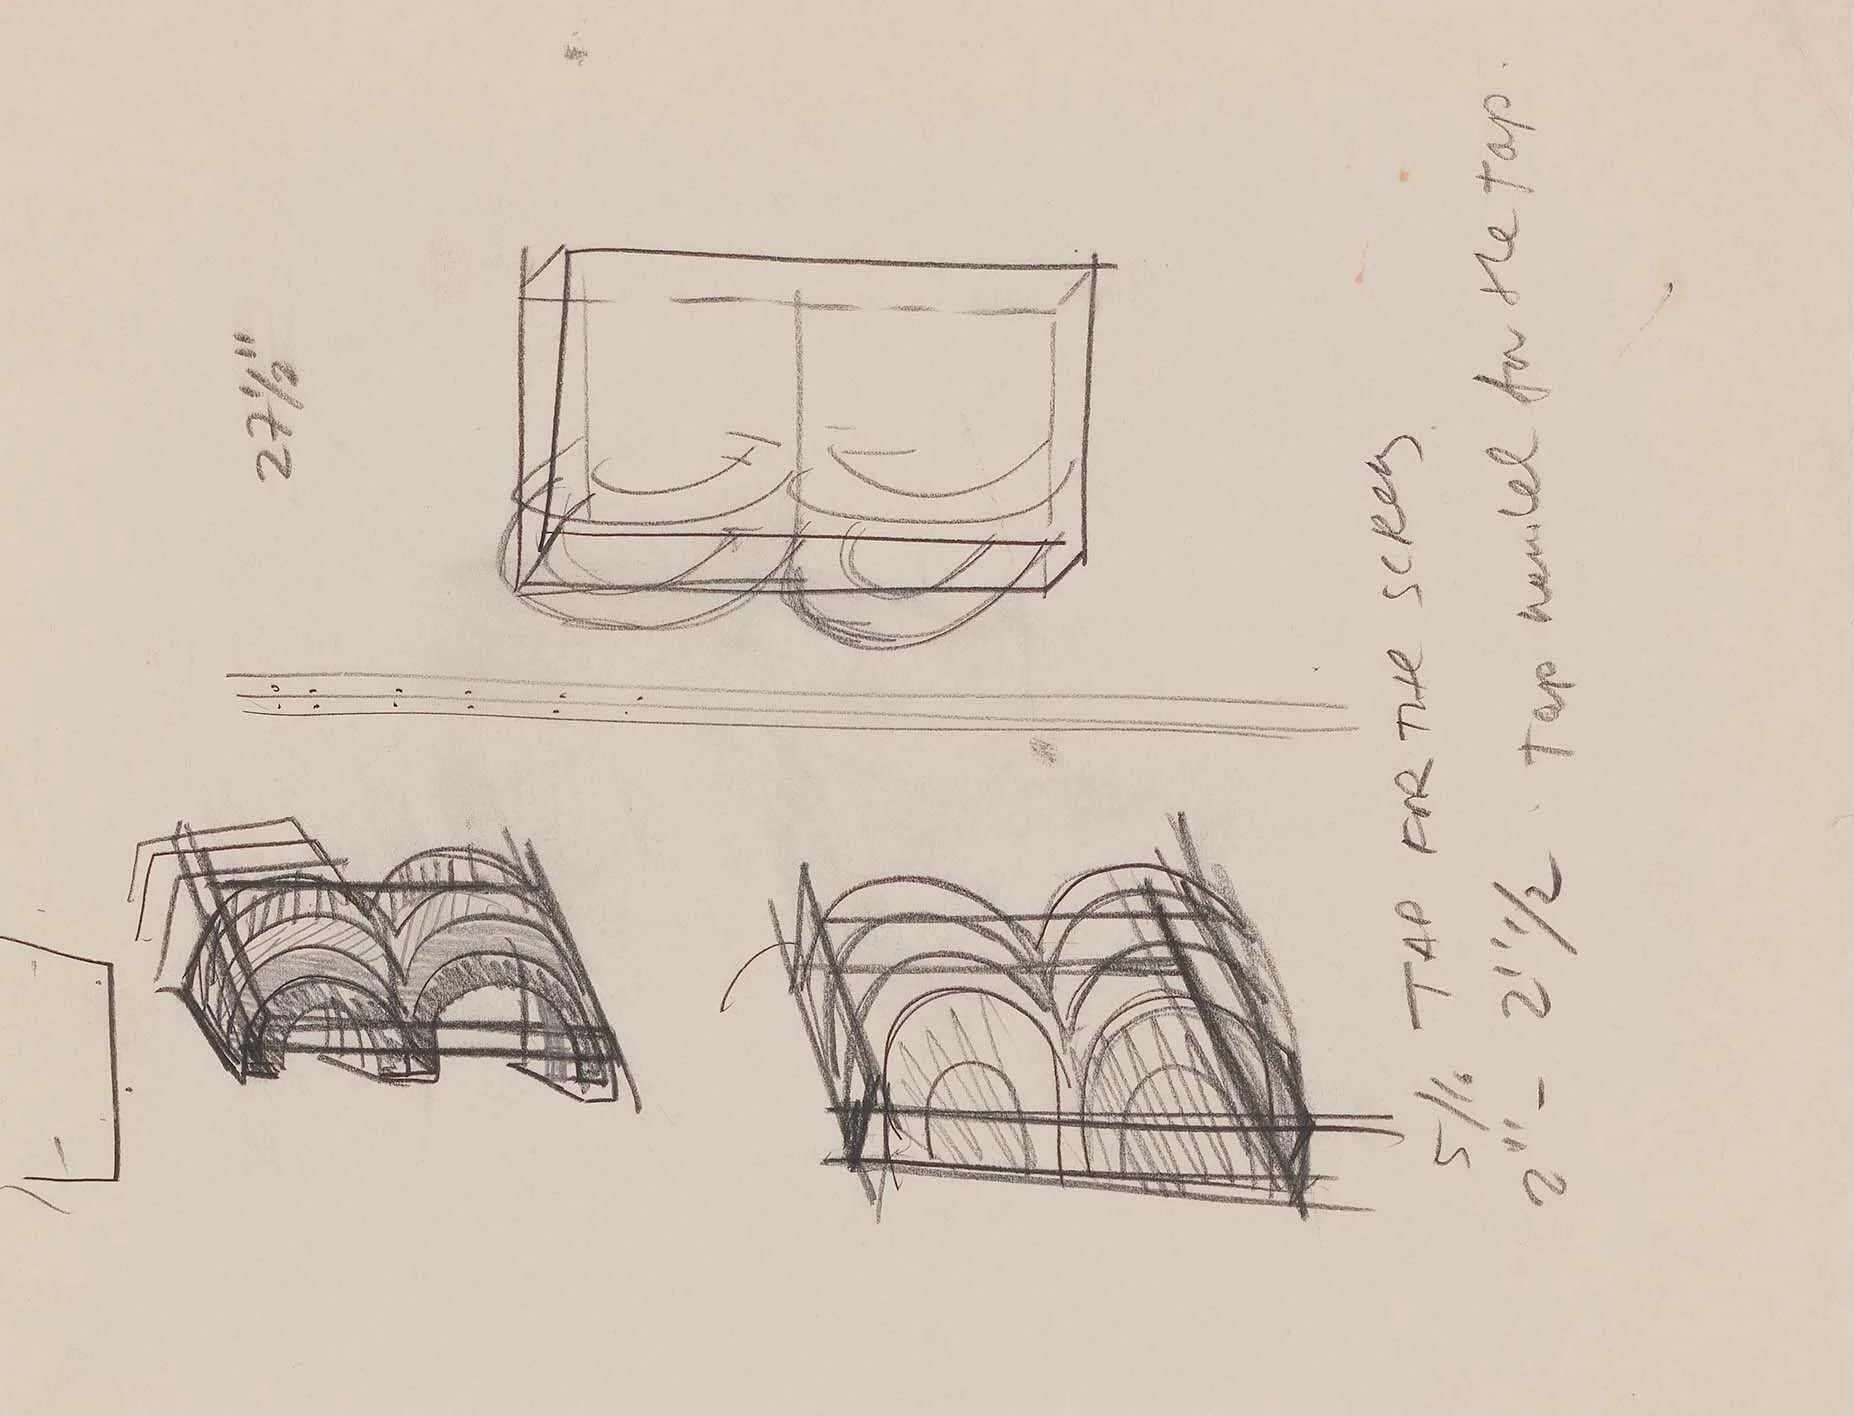 27 1/2"
5/16 TAP FOR THE SCREW
2" - 2" 1/2 . Tap for the Tap.